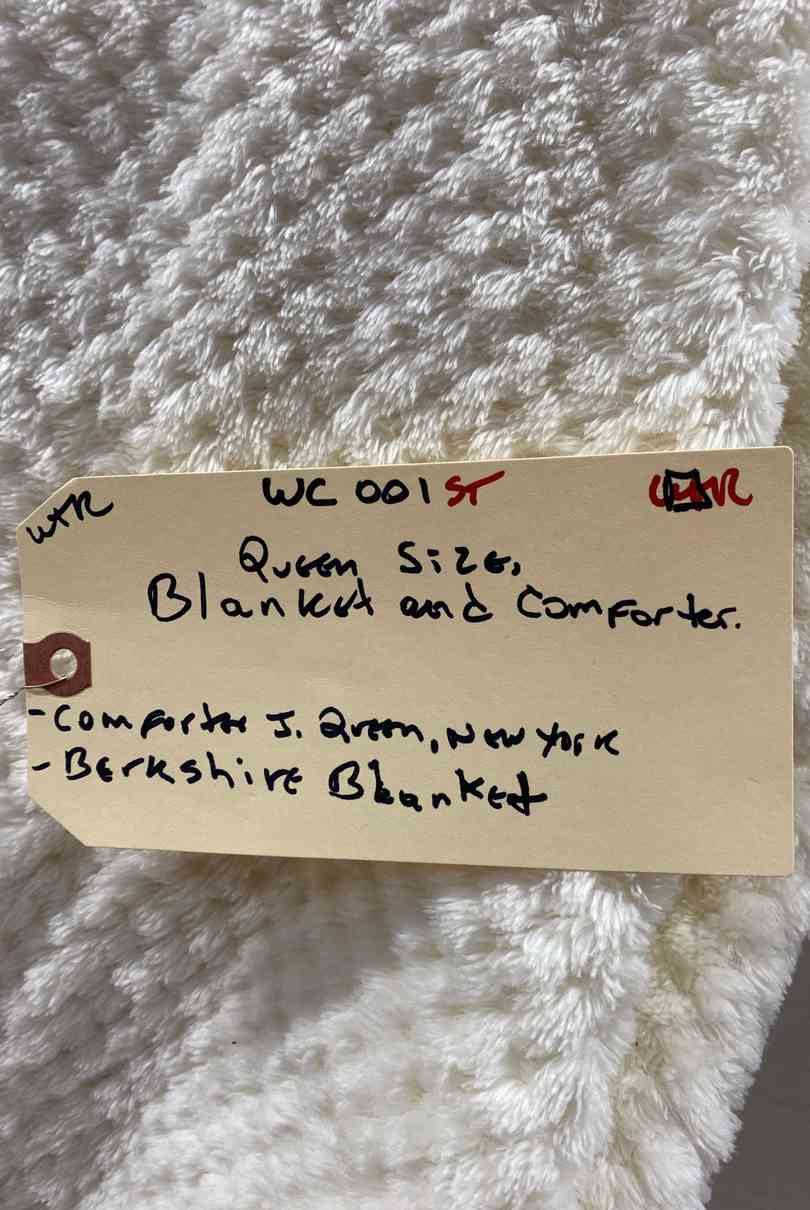 WTR
WC 001 ST
Queen Size,
Blanket and Comforter.
- Comforter J. Queen, New York
- Berkshire Blanket